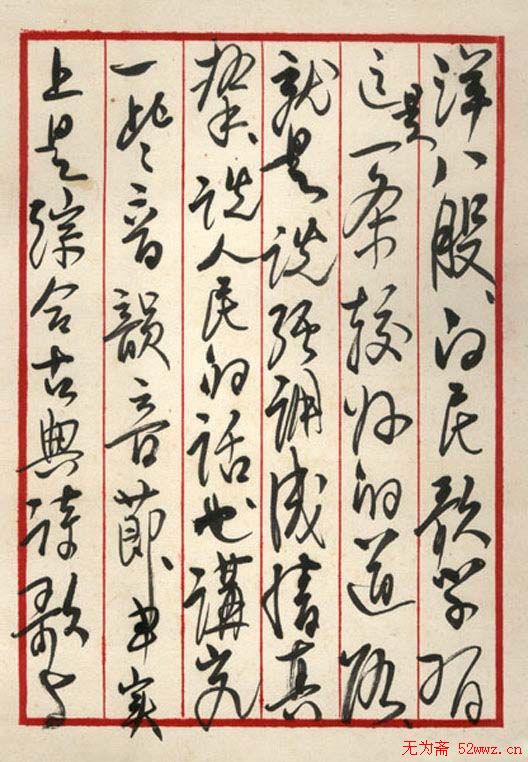 洋八股、向民歌学习
这是一条较好的道路、
就是说强调感情真
挚、说人民的话也讲究
一些音韵音节、事实
上是综合古典诗歌与
无为斋 52wwz.cn